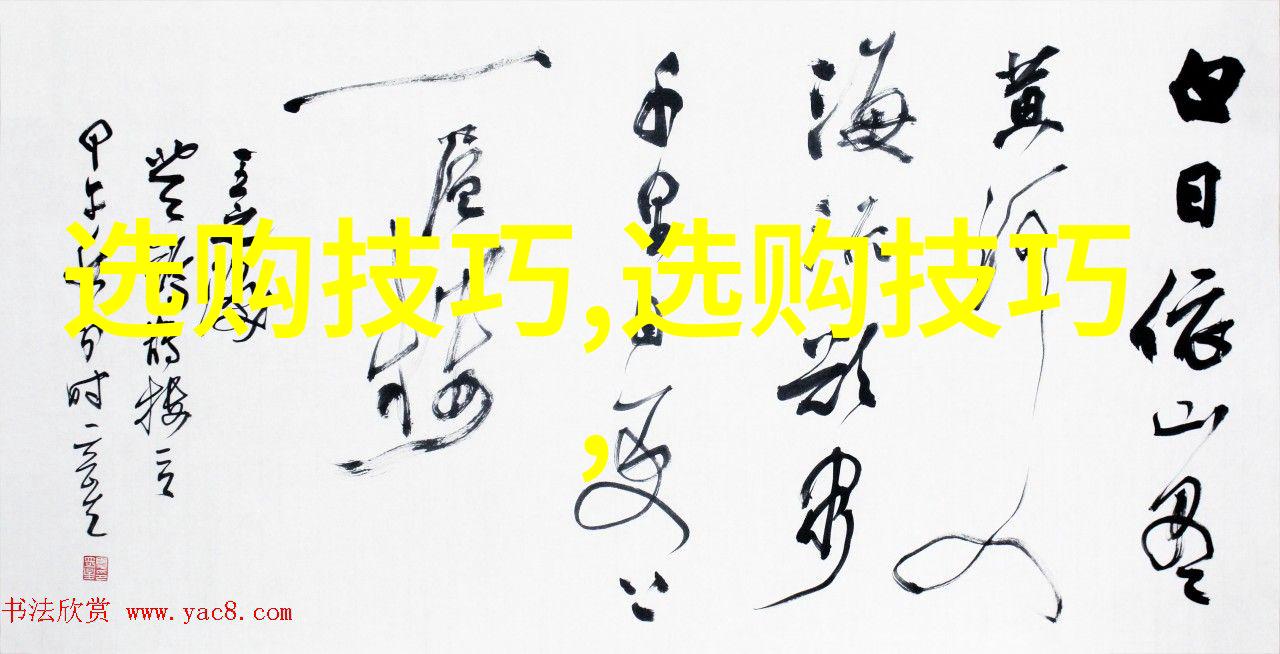 白日依山尽
黄河入
海流欲穷
千里目更上
一層楼
王之涣
选购技巧,选购技巧
,
书法欣赏 www.yac8.com